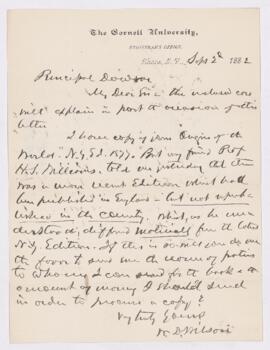 The Cornell University,
REGISTRAR'S OFFICE,
Ithaca, N. Y., Sept 2d 1882
Principal Dawson
My Dear Sir the inclosed card
will explain in part the occasion of this
letter
I have a copy of your "Origin of the
World" N.Y. Ed. 1877. But my friend Prof
H.S. Williams, told me yesterday that there
was a more recent Edition which had
been published in England - but not repub-
lished in this country. Which, as he un-
derstood it, differed materially from the
N.Y. Edition. If this is so will you do me
the favor to send me the name of parties
to whom I can send for the book & the
amount of money I should send
in order to procure a copy?
Very truly yours
W. D. Wilson